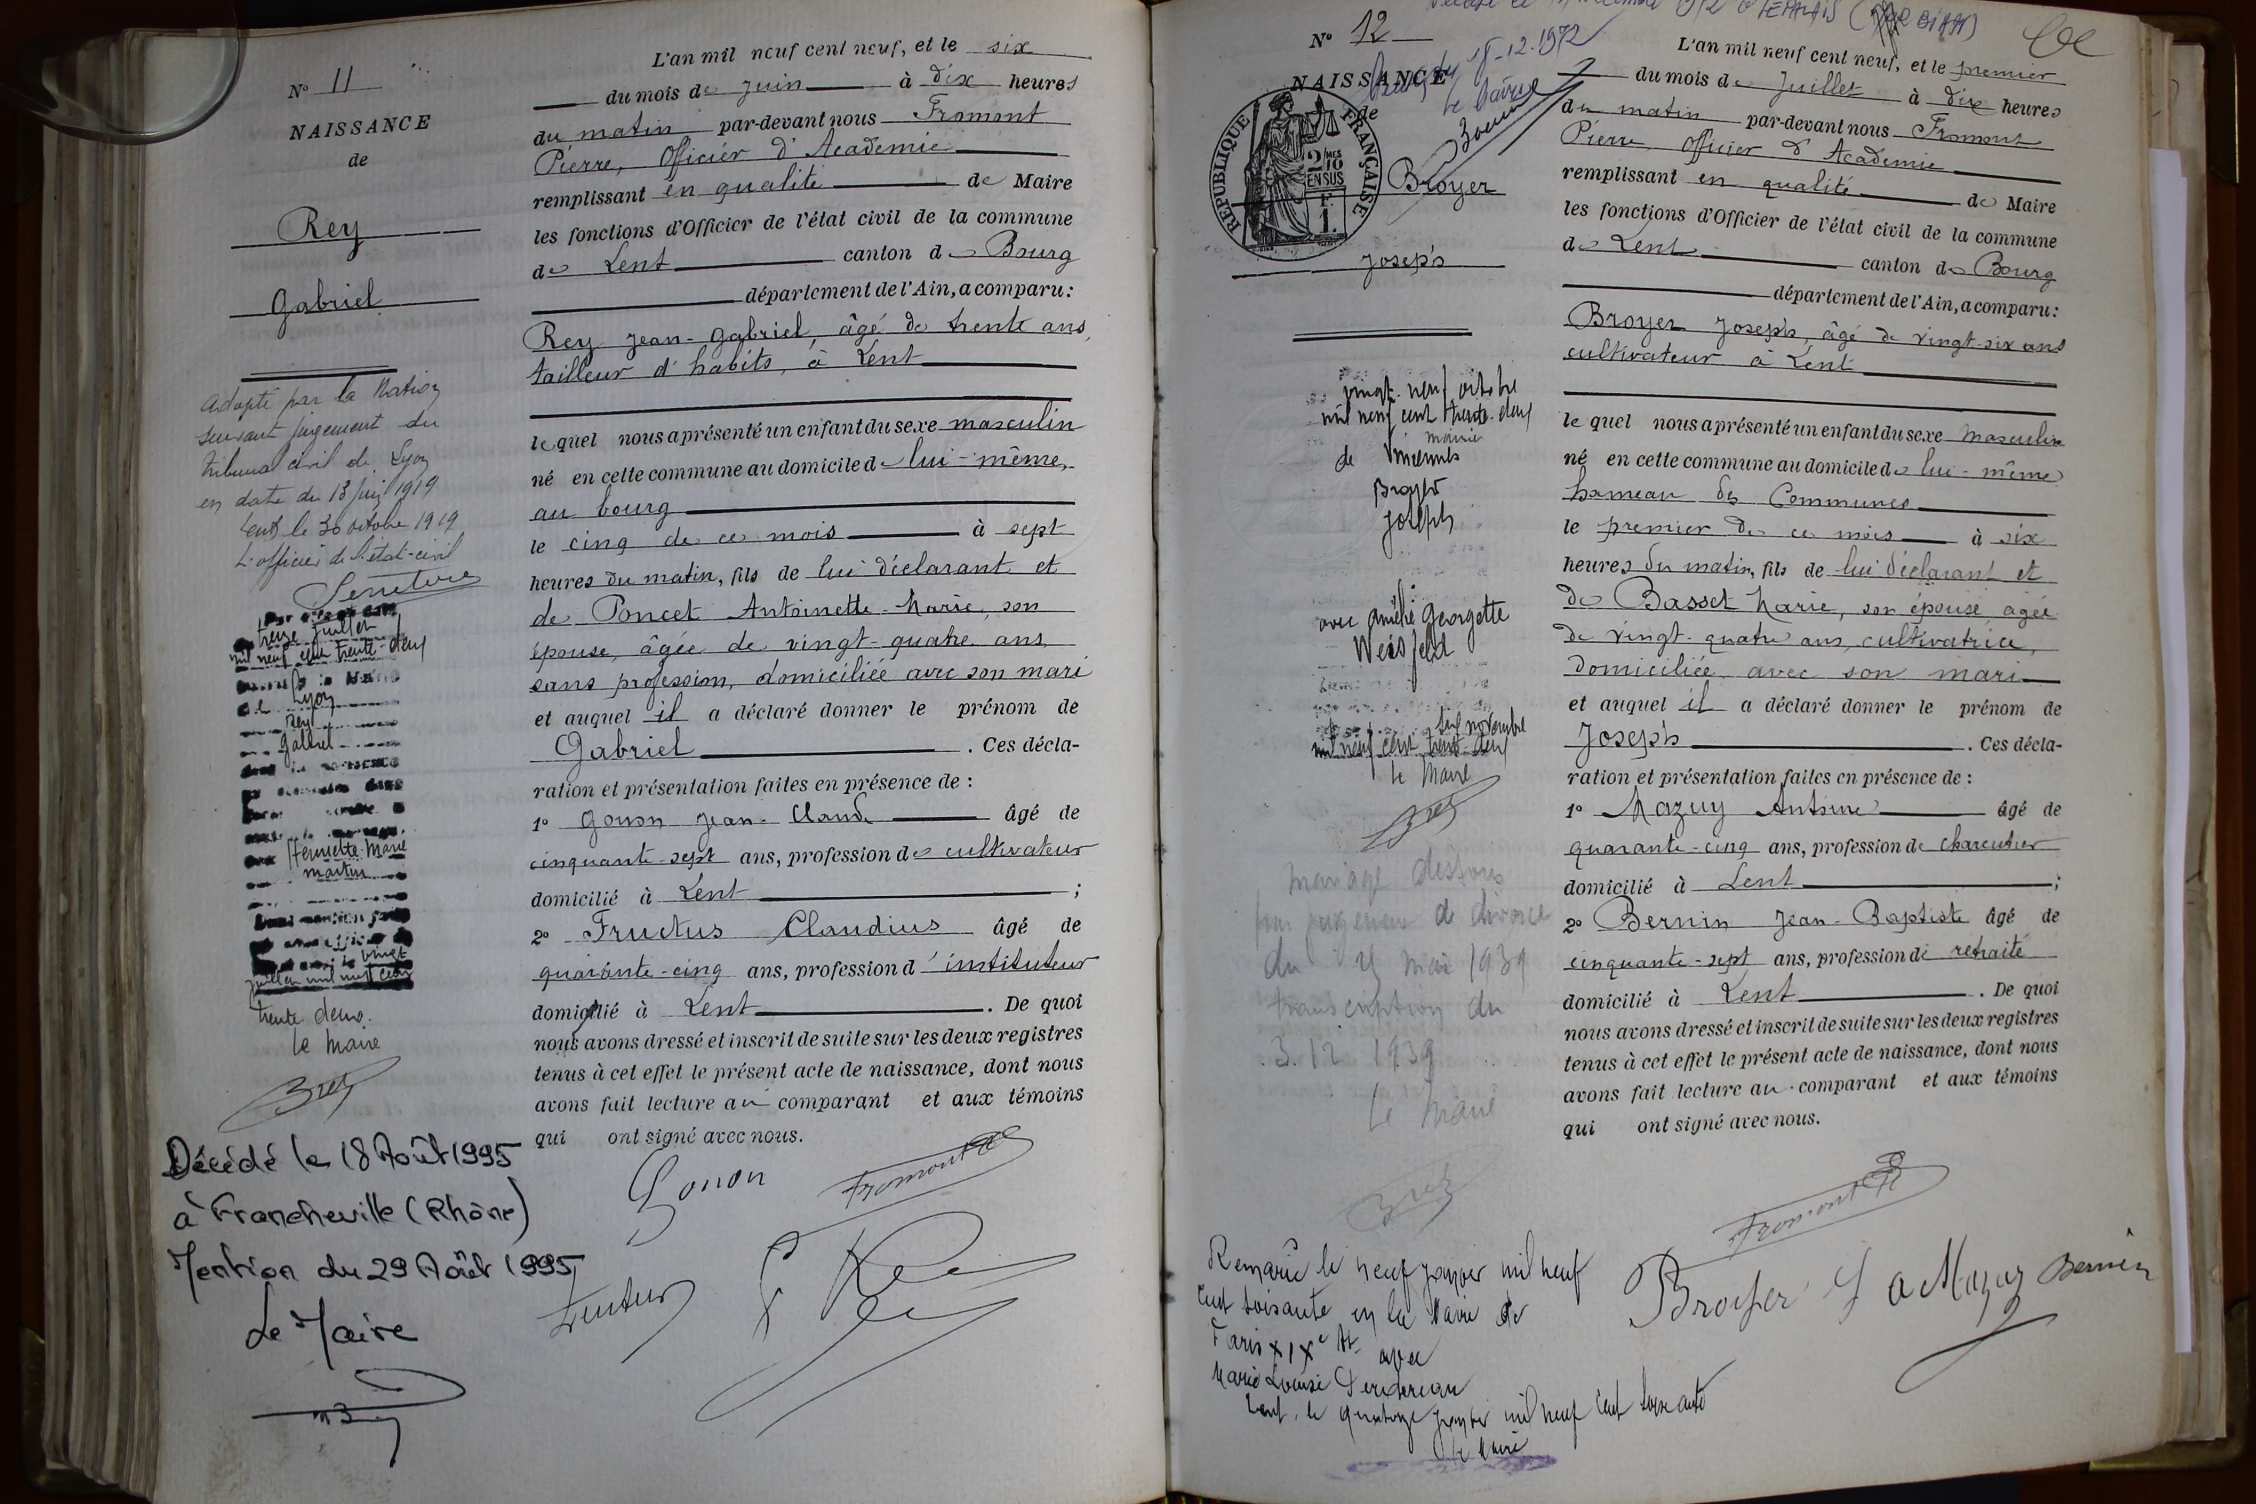 N° 11
NAISSANCE
de
Rey
Gabriel
adopté par la Nation
suivant jugement du
tribunal civil de Lyon
en date du 18 juin 1919
Lent le 30 octobre 1919
L'officier de l'état-civil
treize juillet
mil neuf cent trente-deux
Lyon
Rey
Gabriel
Henriette Marie
Martin
vingt
juillet mil neuf cent
trente deux.
le Maire
Décédé le 18 Août 1995
à Francheville (Rhône)
Mention du 29 Août 1995
Le Maire
L'an mil neuf cent neuf, et le six
du mois de Juin à dix heures
du matin par-devant nous Fromont
Pierre, Officier d'Academie
remplissant en qualité de Maire
les fonctions d'Officier de l'état civil de la commune
de Lent canton de Bourg
département de l'Ain, a comparu:
Rey Jean-Gabriel, âgé de trente ans,
tailleur d'habits, à Lent
lequel nous a présenté un enfant du sexe masculin
né en cette commune au domicile de lui-même,
au bourg
le cinq de ce mois à sept
heures du matin, fils de lui déclarant et
de Poncet Antoinette-Marie, son
épouse, âgée de vingt-quatre ans,
sans profession, domiciliée avec son mari
et auquel il a déclaré donner le prénom de
Gabriel. Ces décla-
ration et présentation faites en présence de :
1° Gonon Jean-Claude âgé de
cinquante-sept ans, profession de cultivateur
domicilié à Lent ;
2° Fructus Claudius âgé de
quarante-cinq ans, profession d'instituteur
domicilié à Lent. De quoi
nous avons dressé et inscrit de suite sur les deux registres
tenus à cet effet le présent acte de naissance, dont nous
avons fait lecture au comparant et aux témoins
qui ont signé avec nous.
Gonon Fromont
Fructus G Rey
N° 12
18-12-1972
Le Maire
NAISSANCE
de
REPUBLIQUE FRANÇAISE
2/10
EN SUS
F.
1.
Broyer
Joseph
vingt-neuf octobre
mil neuf cent trente-deux
mairie
de Vincennes
Broyer
Joseph
avec Amélie Georgette
Weisfeld
six novembre
mil neuf cent trente-deux
le Maire
mariage dissous
par jugement de divorce
du mai 1939
transcription du
3.12 1939
Le Maire
Remarié le neuf janvier mil neuf
cent soixante en la Mairie de
Paris XIXe Ar. avec
Marie Louise
Lent, le quatorze janvier mil neuf cent soixante
Le Maire
L'an mil neuf cent neuf, et le premier
du mois de Juillet à dix heures
du matin par-devant nous Fromont
Pierre, Officier d'Academie
remplissant en qualité de Maire
les fonctions d'Officier de l'état civil de la commune
de Lent canton de Bourg
département de l'Ain, a comparu:
Broyer Joseph, âgé de vingt-six ans
cultivateur à Lent
lequel nous a présenté un enfant du sexe masculin
né en cette commune au domicile de lui-même
hameau des Communes
le premier de ce mois à six
heures du matin, fils de lui déclarant et
de Basset Marie, son épouse, âgée
de vingt-quatre ans, cultivatrice,
domiciliée avec son mari
et auquel il a déclaré donner le prénom de
Joseph. Ces décla-
ration et présentation faites en présence de :
1° Mazuy Antoine âgé de
quarante-cinq ans, profession de charcutier
domicilié à Lent ;
2° Bernin Jean-Baptiste âgé de
cinquante-sept ans, profession de retraité
domicilié à Lent. De quoi
nous avons dressé et inscrit de suite sur les deux registres
tenus à cet effet le présent acte de naissance, dont nous
avons fait lecture au comparant et aux témoins
qui ont signé avec nous.
Fromont
Broyer J a Mazuy Bernin